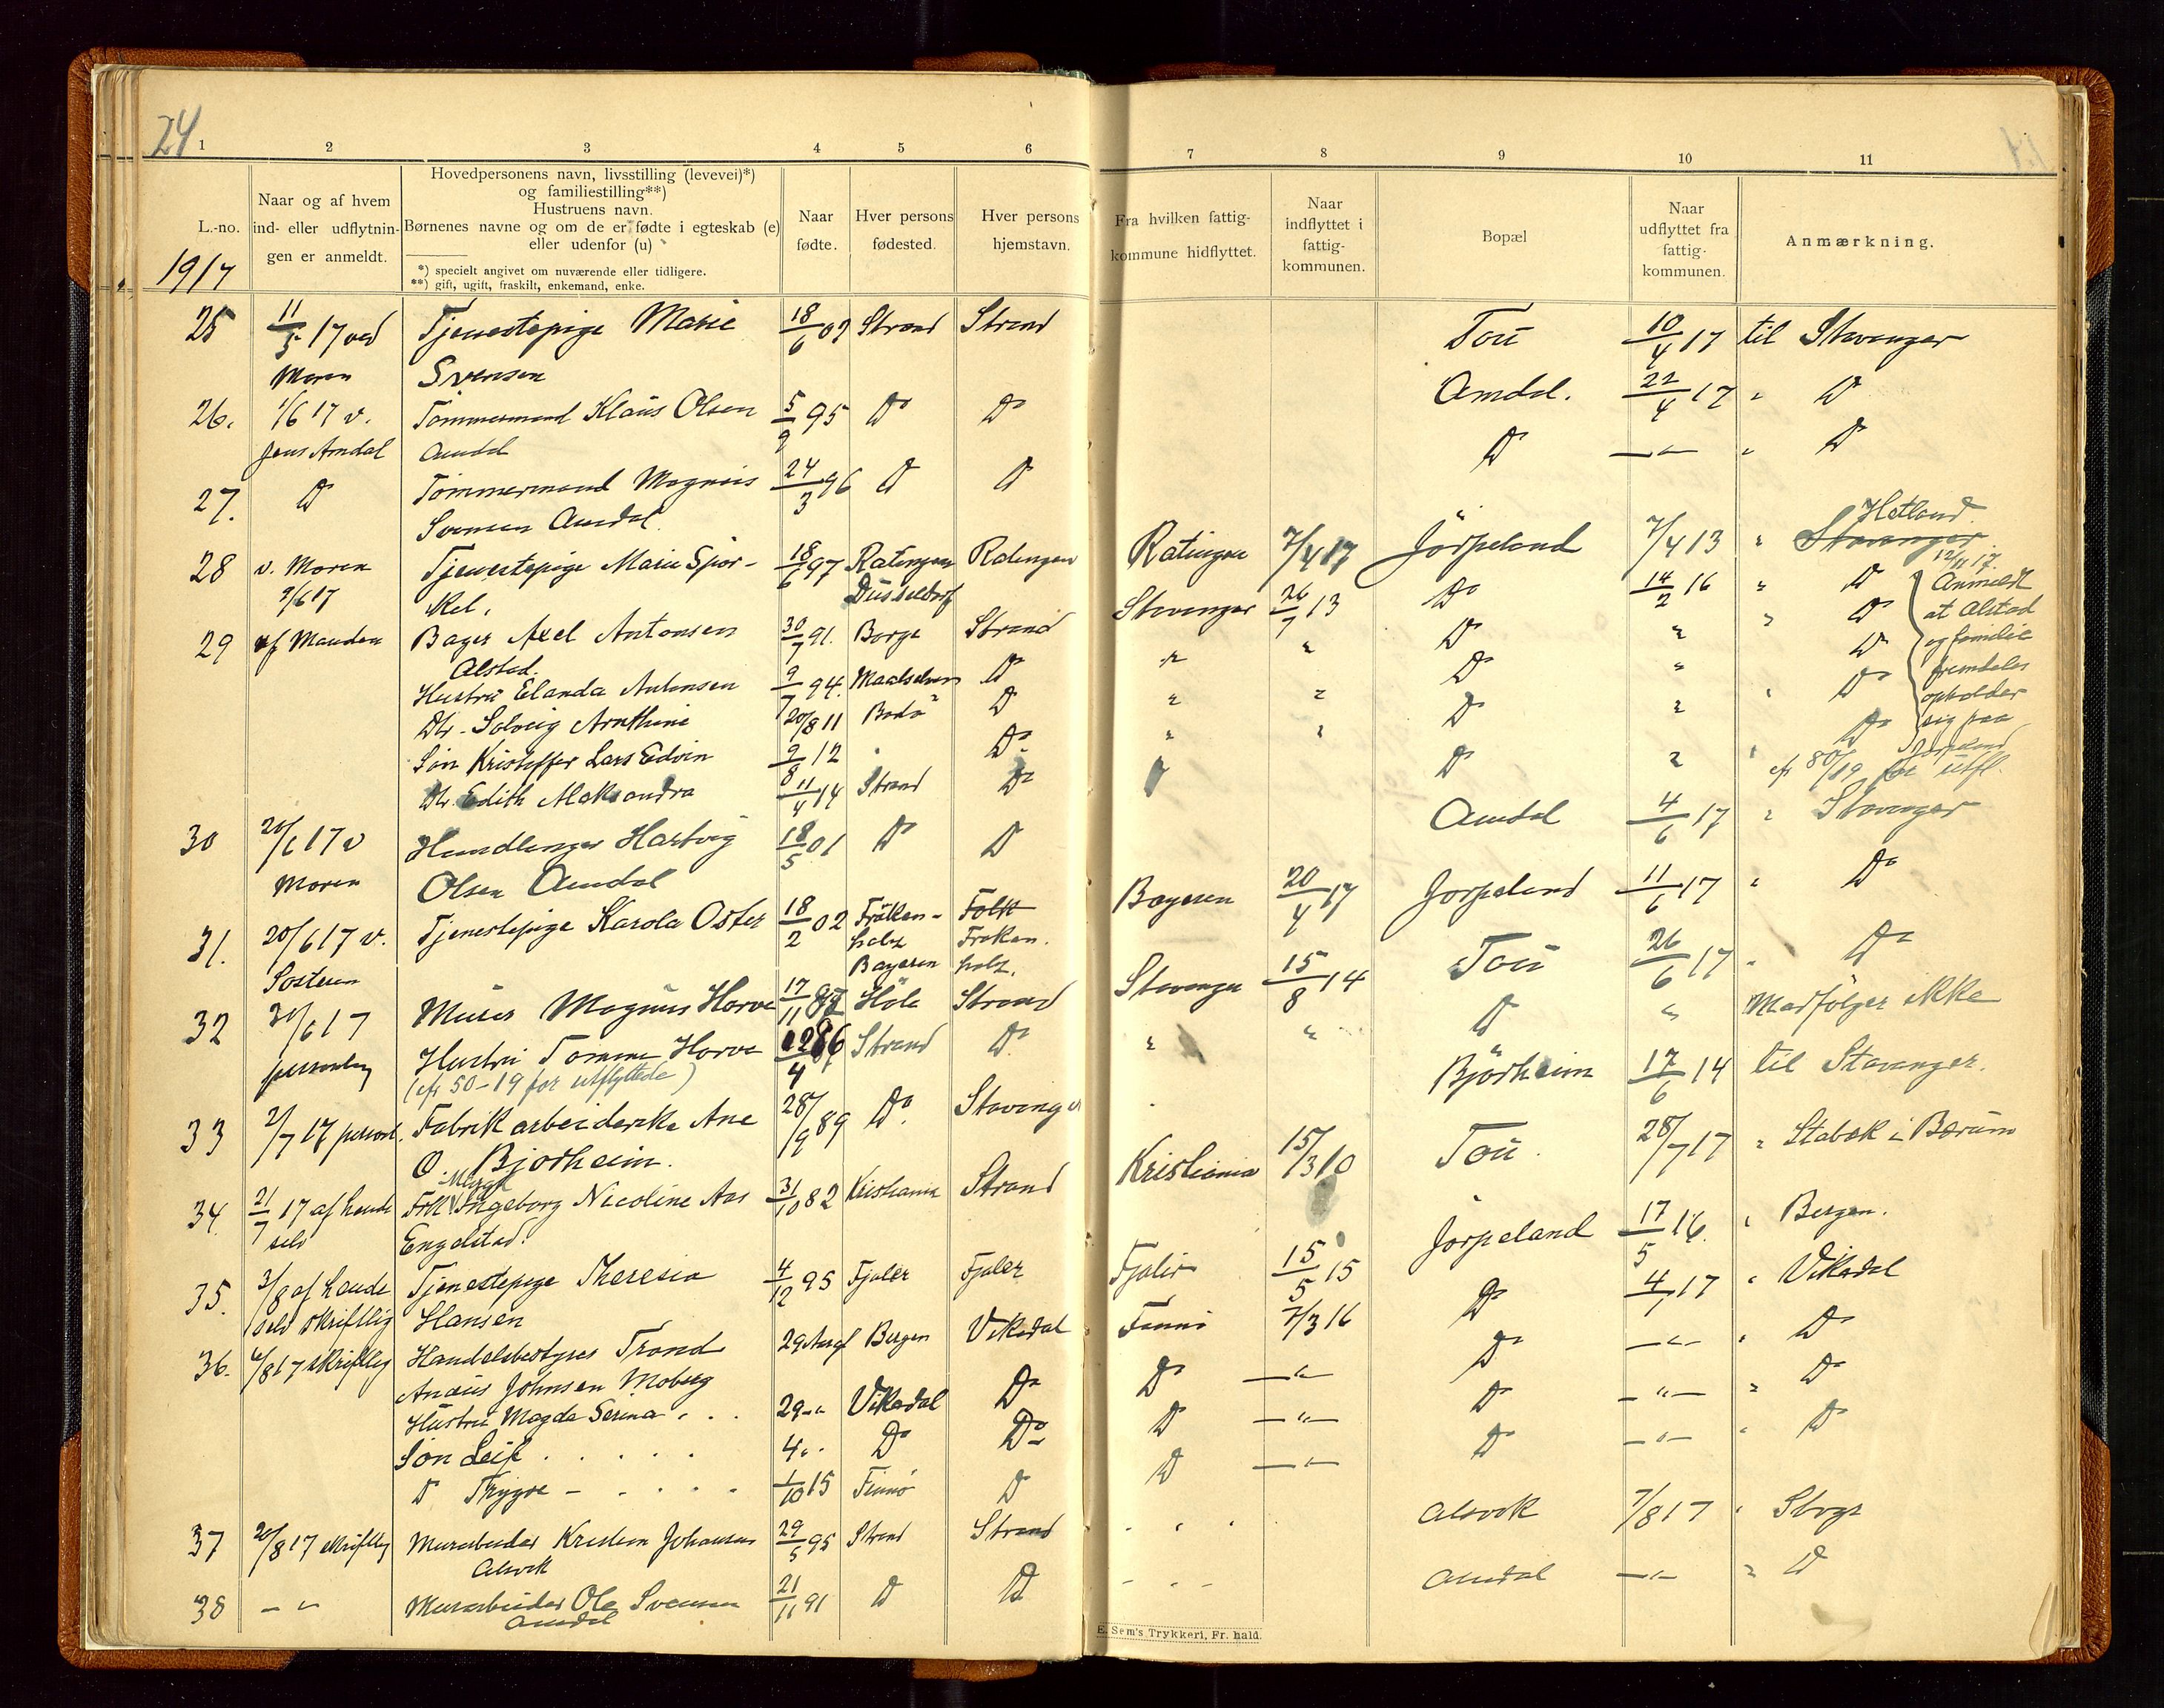 24
1 2 3 4 5 6 7 8 9 10 11
L.-no.
1917
Naar og af hvem
ind- eller udflytnin-
gen er anmeldt.
Hovedpersonens navn, livsstilling (levevei)*)
og familiestilling**)
Hustruens navn.
Børnenes navne og om de er fødte i egteskab (e)
eller udenfor (u)
*) specielt angivet om nuværende eller tidligere.
**) gift, ugift, fraskilt, enkemand, enke.
Naar
fødte.
Hver persons
fødested.
Hver persons
hjemstavn.
Fra hvilken fattig-
kommune hidflyttet.
Naar
indflyttet i
fattig-
kommunen.
Bopæl
Naar
udflyttet fra
fattig-
kommunen.
Anmærkning.
25 11/5 17 ved Tjenestepige Marie 18/6 02 Strand Strand Tou 10/4 17 til Stavanger
Moren Svensen
26. 1/6 17 v. Tømmermand Klaus Olsen 5/9 95 Do Do Amdal. 22/4 17 " Do
Jens Amdal Amdal
27. Do Tømmermand Magnus 24/3 96 Do Do Do —"— " Do
Svensen Amdal
28 v. Moren Tjenestepige Marie Spor- 18/6 97 Ratingen Ratingen Ratingen 7/4 17 Jörpeland 7/4 13 " Stavanger Hetland
2/6 17 kel. Düsseldorf 12/11 17.
29 af Manden Bager Axel Antonsen 30/7 91. Borge Strand Stavanger 26/7 13 Do 14/2 16 " Do Anmeldt
Alstad. at Alstad
Hustru Elanda Antonsen 9/7 94. Maalselven Do " " Do " " Do og familie
Dtr. Solveig Arnthine 20/8 11 Bodø Do " " Do " Do fremdeles
Søn Kristoffer Lars Edvin 2/8 12 " Do " " Do " " Do opholder
Dtr. Edith Aleksandra 11/4 14 Strand Do " Do " " Do sig paa
Jörpeland
cfr 80/19 for utfl.
30 20/6 17 v Hartvig 18/5 01 Do Do Amdal 4/6 17 " Stavanger
Moren Olsen Amdal
31. 20/6 17 v. Tjenestepige Karola Oster 18/2 02 Fröken- Folk Bayeren 20/4 17 Jorpeland 11/6 17 " Do
Søsteren holz Froken.
Bayeren holz.
32 30/6 17 Murer Magnus Horve 17/11 87 Høle Strand Stavanger 15/8 14 Tou 26/6 17 " Do
personlig Hustru Tomine Horve 12/4 86 Strand Do " " Do " Medfølger ikke
(cfr 50-19 for utflyttede)
33 2/7 17 personl. Fabrikarbeiderske Ane 28/9 89 Do. Stavanger Björheim 17/6 14 til Stavanger.
O. Bjorheim.
34. 21/7 17 af hende Frk. Margit Ingeborg Nicoline Aas 31/10 82 Kristiania Strand Kristiania 15/3 10 Tou 28/7 17 " Stabæk i Bærum
selv Engelstad.
35. 3/8 af hende Tjenestepige Theresia 4/12 95 Fjaler Fjaler Fjaler 15/5 15 Jørpeland 17/5 16. " Bergen.
selv skriftlig Hansen
36. 6/8 17 skriftlig Handelsbestyrer Trond 29 Aar gl Bergen Vikedal Finnö 7/3 16 Do 4/1 17 " Vikedal
Anæus Johnsen Moberg
Hustru Magda Serina " . . 29 -"- Vikedal Do Do —"— Do —"— " Do
Søn Leif . . . . . 4 ". Do Do Do —"— Do —"— " Do
Do Trygve - . . . . 1/10 15 Finnö Do Do —"— Do —"— " Do
37 20/8 17 skriftlig Murarbeider Kristian Johansen 29/5 95 Strand Strand . " . Alsvik 7/8 17 " Stvgr
Alsvik
38 —"— Murarbeider Ole Svensen 21/11 91 Do Do - - - Amdal —"— " Do
Amdal
E. Sem's Trykkeri, Fr. hald.